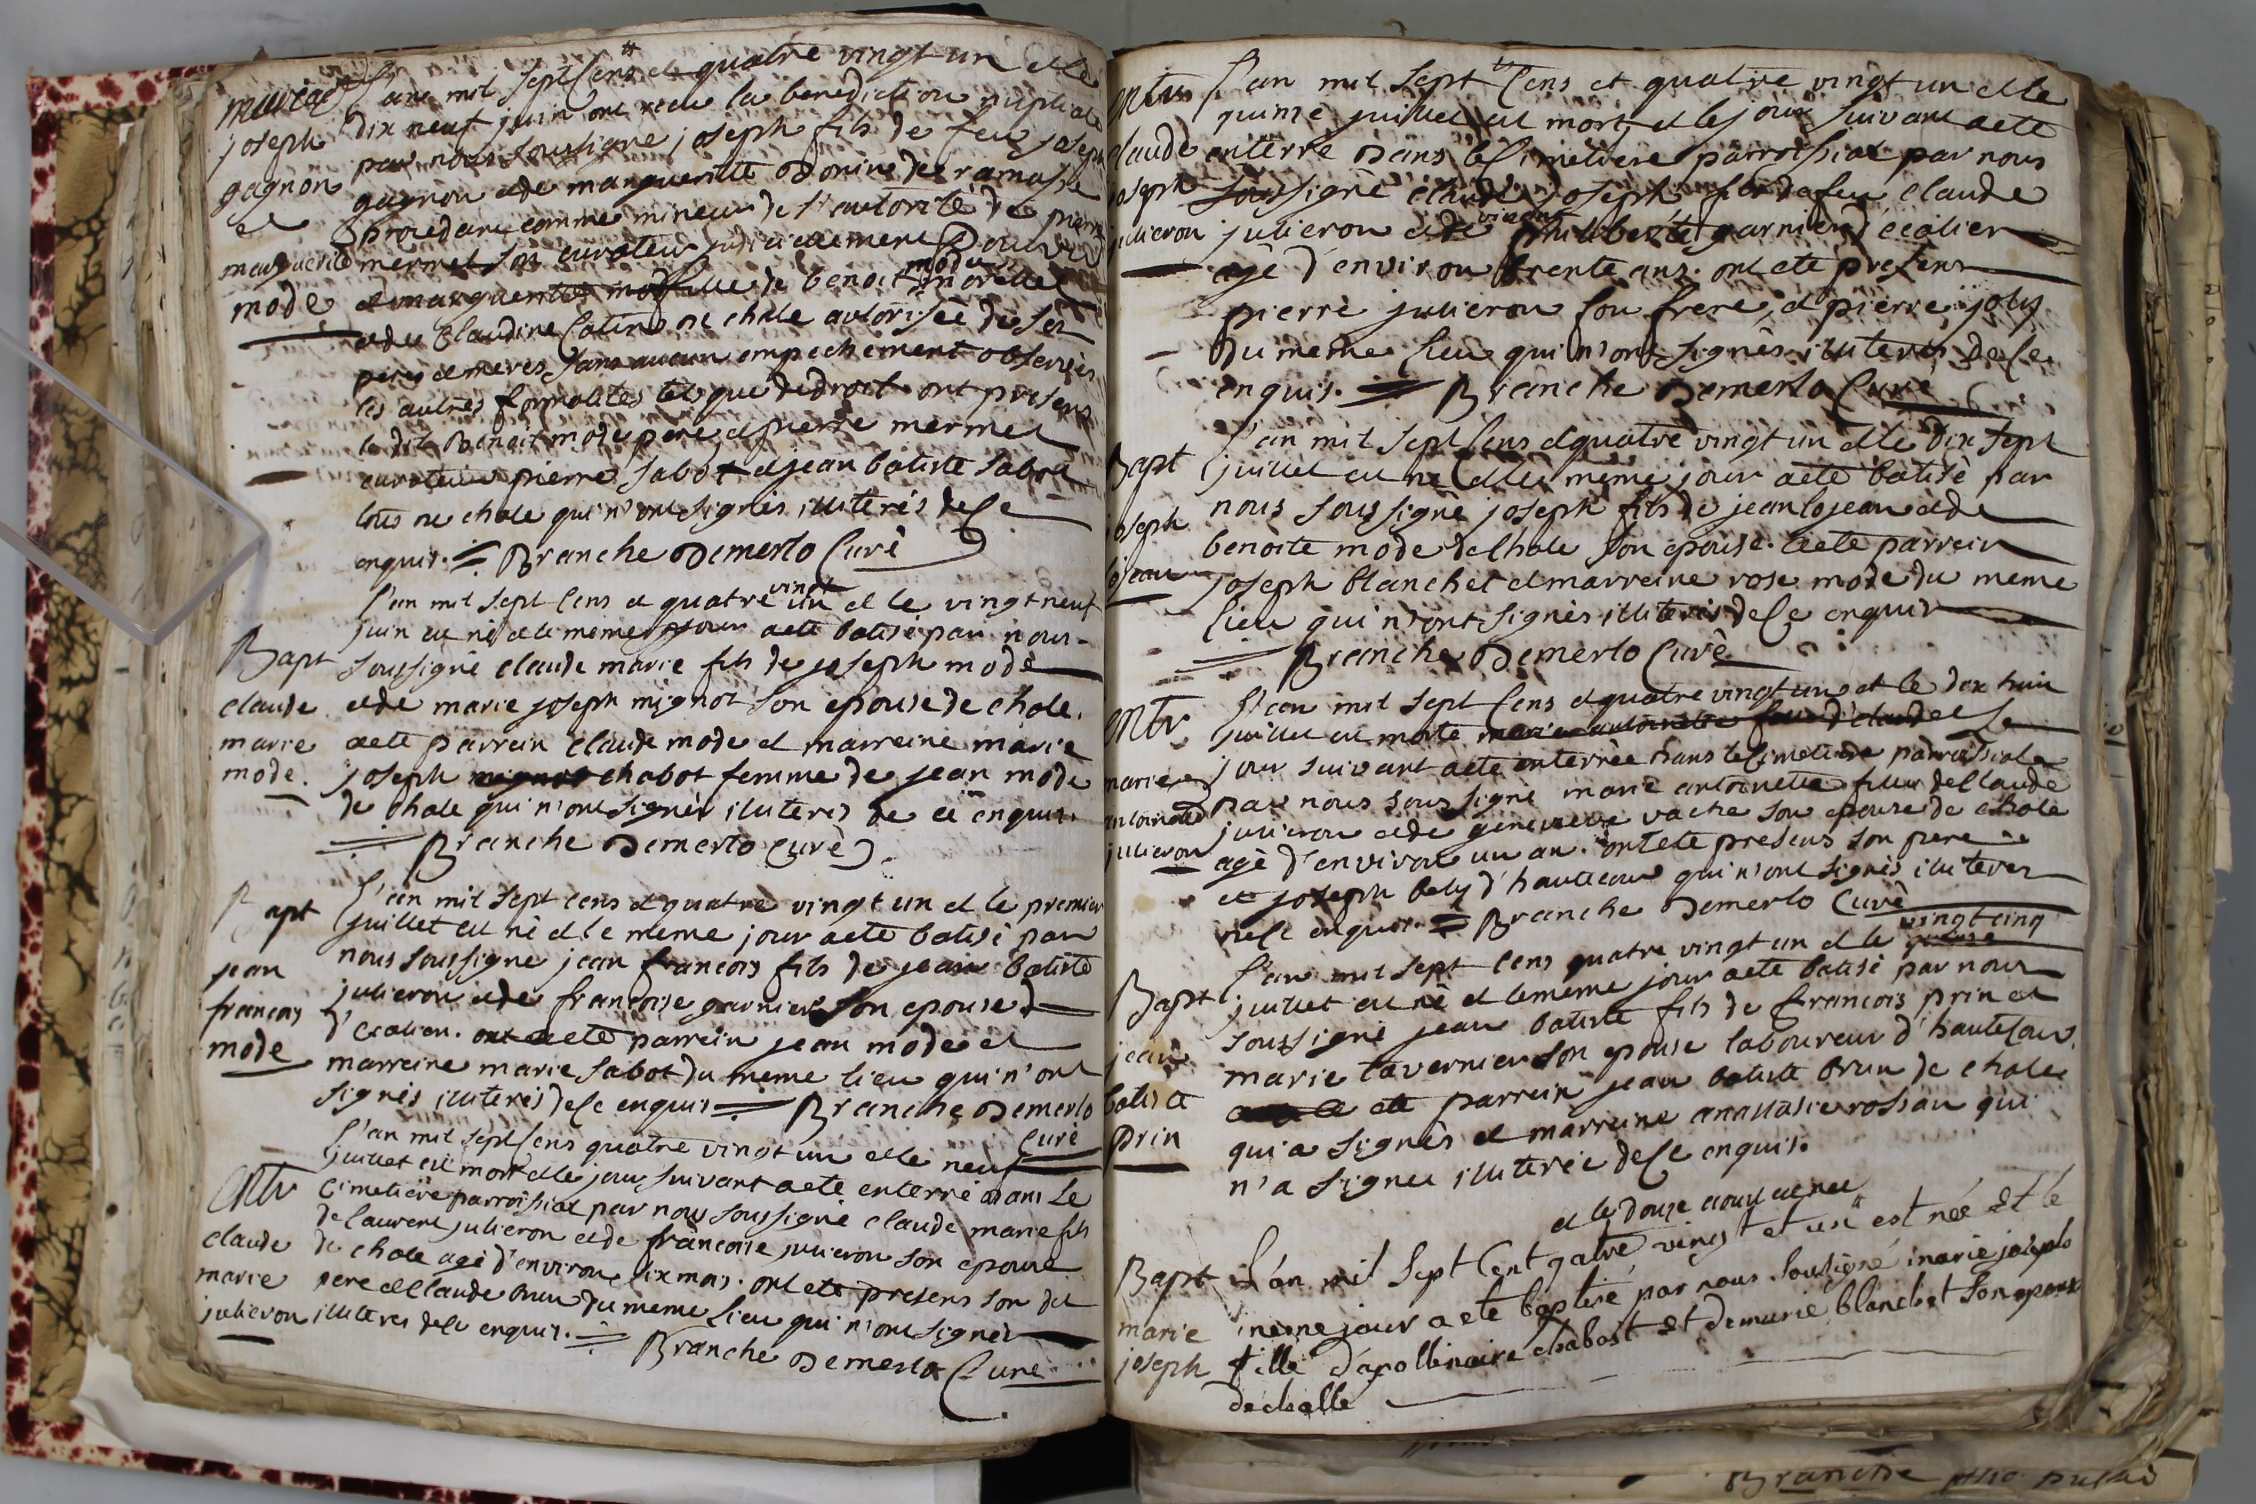 mariage
joseph
gagnon
et
marguerite
mode
L'an mil sept Cens et quatre vingt un et le
dix neuf juin ont recu la benediction nuptiale
par nous soussigné joseph fils de feu joseph
gagnon et de marguerite de ramasse
procedant comme mineur de l'autorité de pierre
mermet son curateur judiciellement
et marguerite fille de benoit mode
et de Claudine Catin de chole autorisée de ses
peres et meres sans aucun empechement observées
les autres formalités tel que de droit ont presens
le dit Benoit mode pere et pierre mermet
curateur pierre sabot et jean batiste sabot
tous de chole qui n'ont signés illiterés de Ce
enquis. Branche Demerlo Curé
Bapt
claude
marie
mode.
L'an mil sept Cens et quatre vingt un et le vingt neuf
juin est né et le meme jour a eté batisé par nous
soussigné claude marie fils de joseph mode
et de marie joseph mignot son epouse de chole.
a eté parrein claude mode et marreine marie
joseph chabot femme de jean mode
de chole qui n'ont signés illiterés de ce enquis.
Branche Demerlo Curé
Bapt
jean
francois
mode
L'an mil sept cens et quatre vingt un et le premier
juillet est né et le meme jour a eté batisé par
nous soussigné jean francois fils de jean batiste
julieron et de francoise garnier son epouse
d'ecolier. a eté parrein jean mode et
marreine marie sabot du meme lieu qui n'ont
signés illiterés de Ce enquis Branche Demerlo
Curé
Entr
claude
marie
julieron
L'an mil sept Cens quatre vingt un et le neuf
juillet est mort et le jour suivant a eté enterré dans Le
Cimetiere parroissial par nous soussigné claude marie fils
de laurent julieron et de francoise julieron son epouse
de chole agé d'environ six mois. ont eté presens son dit
pere et Claude brun du meme lieu qui n'ont signés
illiterés de Ce enquis. Branche Demerlo Curé
Entr
claude
joseph
julieron
L'an mil sept Cens et quatre vingt un et le
quinze juillet est mort et le jour suivant a eté
enterré dans le Cimetiere parroissial par nous
soussigné claude joseph fils de feu claude
julieron et de vivant philiberte garnier d'ecolier
agé d'environ trente ans. ont eté presens
pierre julieron son frere et pierre joly
du meme lieu qui n'ont signés illiterés de Ce
enquis. Branche Demerlo Curé
Bapt
joseph
lojean
L'an mil sept Cens et quatre vingt un et le dix sept
juillet est né et le même jour a eté batisé par
nous soussigné joseph fils de jean lojean et de
benoite mode de chole son epouse. a eté parrein
joseph blanchet et marreine rose mode du meme
lieu qui n'ont signés illiterés de Ce enquis
Branche Demerlo Curé
Entr
marie
antoinette
julieron
L'an mil sept Cens et quatre vingt un et le dix huit
juillet est morte marie antoinette et le
jour suivant a eté enterrée dans le Cimetiere parroissial
par nous soussigné marie antoinette fille de Claude
julieron et de genevieve vache son epouse de chole
agé d'environ un an. ont eté presens son pere
et joseph bely d'hautecour qui n'ont signés illiterés
de Ce enquis. Branche Demerlo Curé
Bapt
jean
batiste
prin
L'an mil sept Cens quatre vingt un et le vingt cinq
juillet est né et le meme jour a eté batisé par nous
soussigné jean batiste fils de francois prin et
marie tavernier son epouse laboureur d'hautecour.
a eté parrein jean batiste brun de chole
qui a signés et marreine anastasie rossan qui
n'a signée illiterée de Ce enquis.
Bapt
marie
joseph
et le douze aoust est née
L'an mil Sept Cent qatre vingt et un est née Et le
meme jour a ete baptisé par nous soussigné marie joseph
fille d'apollinaire chabost Et de marie blanchet Son epouse
de cholle
Branche